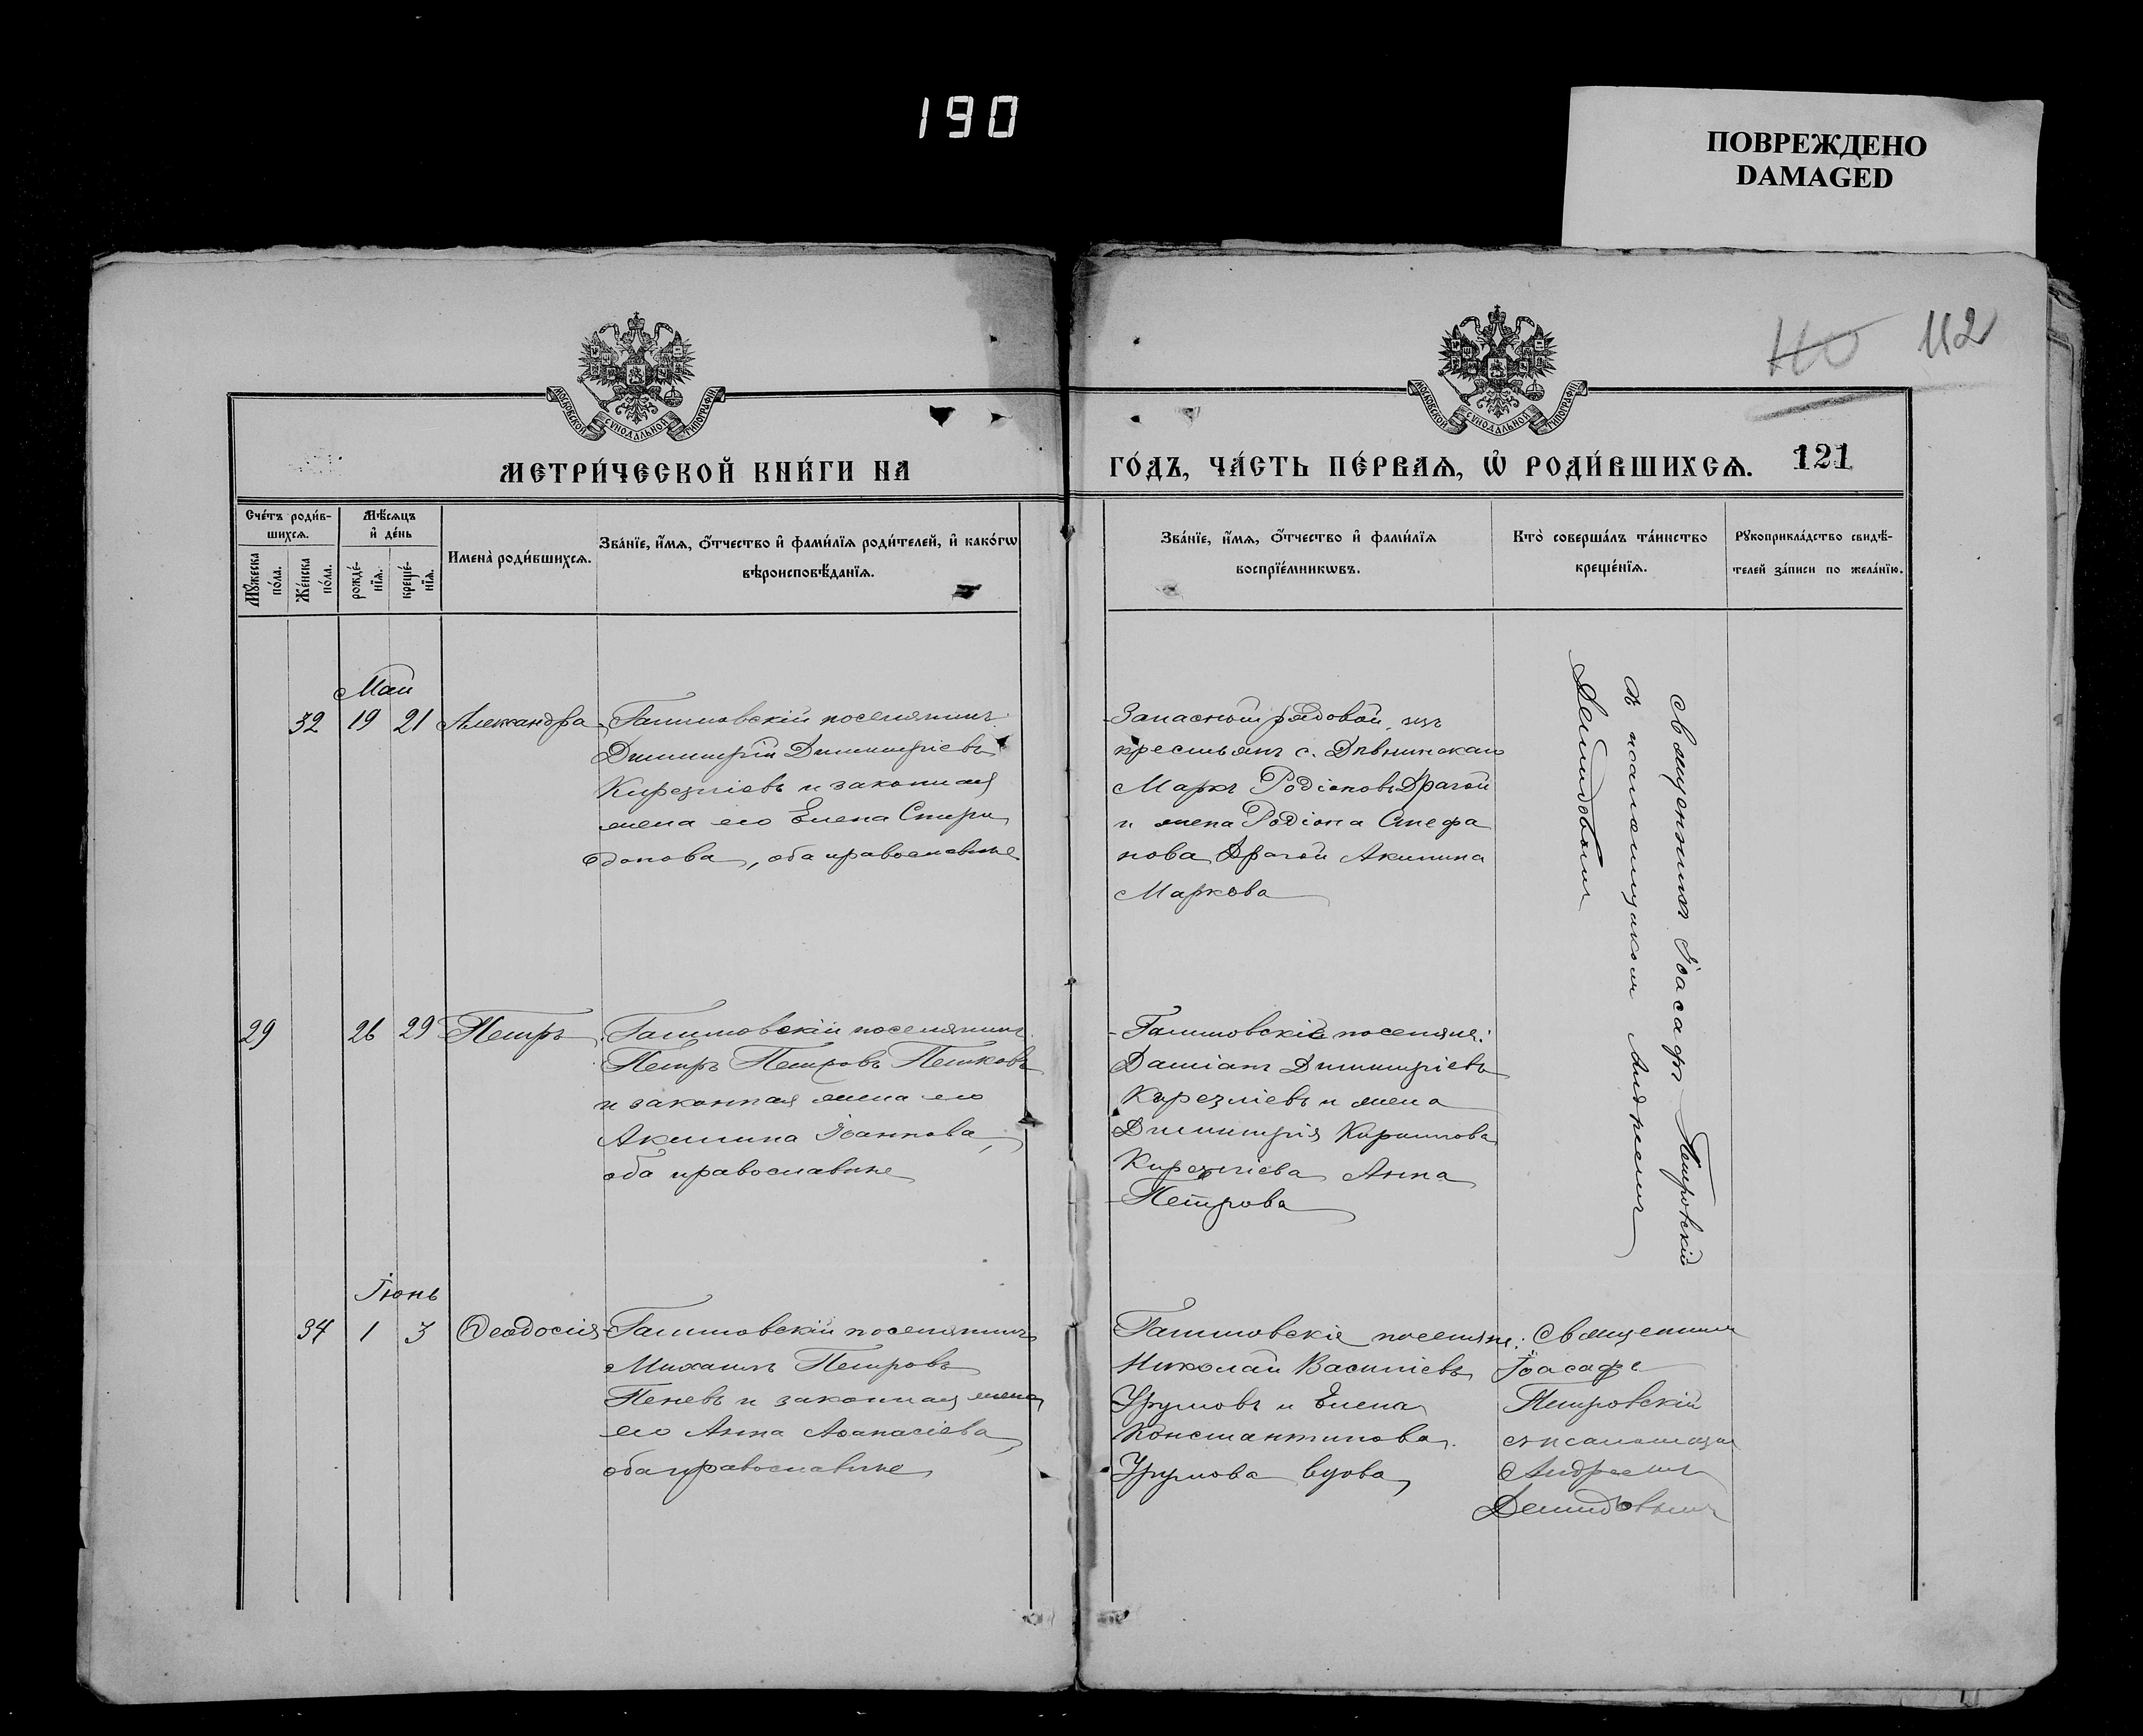 190
ПОВРЕЖДЕНО
DAMAGED
110 112
МОСКОВСКОЙ СѴНОДАЛЬНОЙ ТИПОГРАФІИ
МОСКОВСКОЙ СѴНОДАЛЬНОЙ ТИПОГРАФІИ
МЕТРИ́ЧЕСКОЙ КНИ́ГИ НА
ГО́ДЪ, ЧА́СТЬ ПЕ́РВАѦ, Ѡ҆ РОДИ́ВШИХСѦ. 121
Сче́тъ роди́в-
шихсѧ.
Мꙋ́жеска
по́ла.
Же́нска
по́ла.
Мѣ́сѧцъ
и҆ де́нь
рожде́-
нїѧ.
креще́-
нїѧ.
Имена̀ роди́вшихсѧ.
Зва́нїе, и҆́мѧ, ѻ҆́тчество и҆ фами́лїѧ роди́телей, и҆ како́гѡ
вѣроисповѣ́данїѧ.
Зва́нїе, и҆́мѧ, ѻ҆́тчество и҆ фами́лїѧ
воспрїе́мникѡвъ.
Кто̀ соверша́лъ та́инство
креще́нїѧ.
Рꙋкоприкла́дство свидѣ́-
телей за́писи по жела́нїю.
Май
32 19 21 Александра
поселянинъ
Димитрій Димитріевъ
и законная
жена его Елена Спири
донова, оба православные
Запасной рядовой, изъ
крестьянъ с.
Маркъ Родіоновъ Драгой
и жена Родіона Стефа
нова Драгой Акилина
Маркова
Священникъ Іоасафъ Петровскій
съ псаломщикомъ Андреемъ
Демидовымъ
29 26 29 Петръ
поселянинъ
Петръ Петровъ Петковъ
и законная жена его
Акилина Іоаннова,
оба православные
поселяне:
Даміанъ Димитріевъ
и жена
Димитрія Кириллова
Анна
Петрова
Іюнь
34 1 3 Ѳеодосія
поселянинъ
Михаилъ Петровъ
Пеневъ и законная жена
его Анна Аѳанасіева,
оба православные
поселяне:
Николай Василіевъ
Урумовъ и Елена
Константинова
Урумова вдова
Священникъ
Іоасафъ
Петровскій
съ псаломщ.
Андреемъ
Демидовымъ